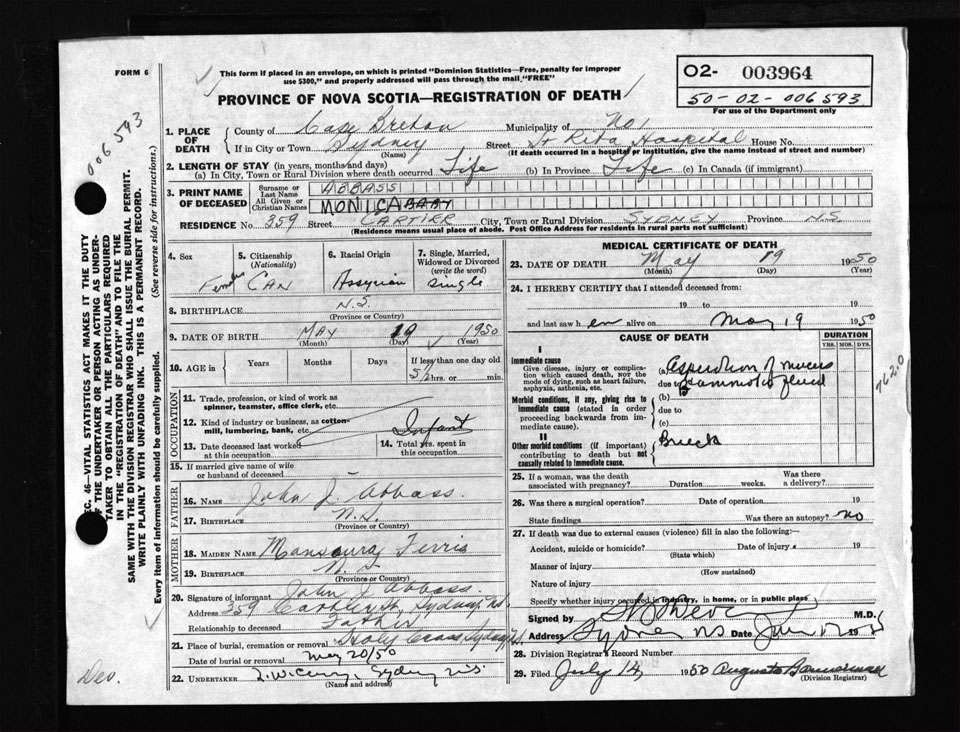 FORM 6
This form if placed in an envelope, on which is printed "Dominion Statistics—Free, penalty for improper
use $300," and properly addressed will pass through the mail "FREE"
PROVINCE OF NOVA SCOTIA—REGISTRATION OF DEATH
02- 003964
50-02-006593
For use of the Department only
006593
1. PLACE OF DEATH
County of Cape Breton Municipality of No 1
If in City or Town Sydney Street St Rita Hospital House No.
(Name) (If death occurred in a hospital or institution, give the name instead of street and number)
2. LENGTH OF STAY (in years, months and days)
(a) In City, Town or Rural Division where death occurred Life (b) In Province Life (c) In Canada (if immigrant)
3. PRINT NAME OF DECEASED
Surname or Last Name ABBASS
All Given or Christian Names MONICA BABY
RESIDENCE No 359 Street CARTIER City, Town or Rural Division SYDNEY Province N.S
(Residence means usual place of abode. Post Office Address for residents in rural parts not sufficient)
4. Sex
5. Citizenship (Nationality) CAN
6. Racial Origin Assyrian
7. Single, Married, Widowed or Divorced (write the word) Single
8. BIRTHPLACE N.S.
(Province or Country)
9. DATE OF BIRTH MAY 19 1950
(Month) (Day) (Year)
10. AGE in Years Months Days If less than one day old
5½ hrs. or min.
OCCUPATION
11. Trade, profession, or kind of work as spinner, teamster, office clerk, etc.
12. Kind of industry or business, as cotton-mill, lumbering, bank, etc. Infant
13. Date deceased last worked at this occupation
14. Total yrs. spent in this occupation
15. If married give name of wife or husband of deceased
FATHER
16. NAME John J Abbass.
17. BIRTHPLACE N.S.
(Province or Country)
MOTHER
18. MAIDEN NAME Mansoura Ferris
19. BIRTHPLACE N S
(Province or Country)
20. Signature of informant John J Abbass.
Address 359 Cartier St, Sydney, NS
Relationship to deceased Father
21. Place of burial, cremation or removal Holy Cross, Sydney
Date of burial or removal May 20/50
22. UNDERTAKER Sydney N.S.
(Name and address)
MEDICAL CERTIFICATE OF DEATH
23. DATE OF DEATH May 19 1950
(Month) (Day) (Year)
24. I HEREBY CERTIFY that I attended deceased from:
19 to 19
and last saw h er alive on May 19 1950
CAUSE OF DEATH
DURATION
YRS. MOS. DYS.
I
Immediate cause
Give disease, injury or complication which caused death, not the mode of dying, such as heart failure, asphyxia, asthenia, etc.
(a) Aspiration of mucus
due to
Morbid conditions, if any, giving rise to immediate cause (stated in order proceeding backwards from immediate cause).
(b)
due to
(c)
II
Other morbid conditions (if important) contributing to death but not causally related to immediate cause.
Breech
762.0
25. If a woman, was the death associated with pregnancy? Duration weeks. Was there a delivery?
26. Was there a surgical operation? Date of operation 19
State findings Was there an autopsy? no
27. If death was due to external causes (violence) fill in also the following:
Accident, suicide or homicide? Date of injury 19
(State which)
Manner of injury
(How sustained)
Nature of injury
Specify whether injury occurred in industry, in home, or in public place
Signed by M.D.
Address Sydney NS Date 19
28. Division Registrar's Record Number
29. Filed July 14 1950
(Division Registrar)
SEC. 46—VITAL STATISTICS ACT MAKES IT THE DUTY
OF THE UNDERTAKER OR PERSON ACTING AS UNDER-
TAKER TO OBTAIN ALL THE PARTICULARS REQUIRED
IN THE "REGISTRATION OF DEATH" AND TO FILE THE
SAME WITH THE DIVISION REGISTRAR WHO SHALL ISSUE THE BURIAL PERMIT.
WRITE PLAINLY WITH UNFADING INK. THIS IS A PERMANENT RECORD.
Every item of information should be carefully supplied. (See reverse side for instructions.)
Dev.